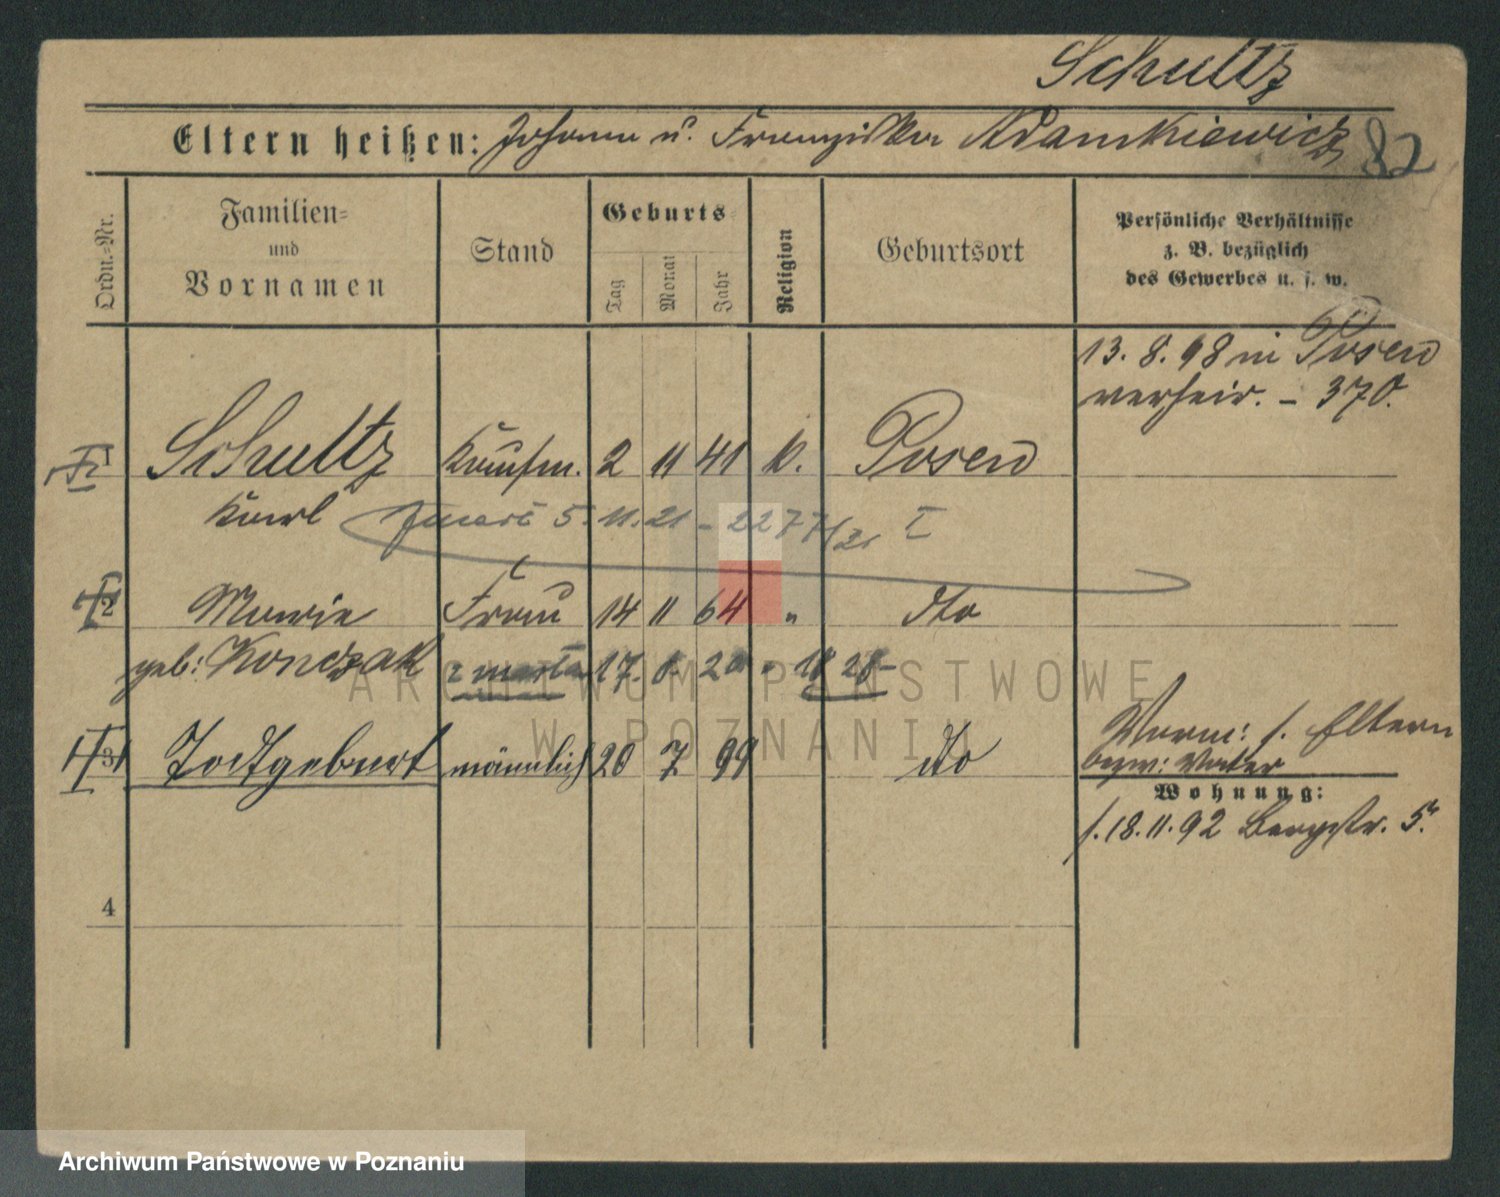 Schultz
Eltern heißen: Johann u. Franziska Adamkiewicz 82
Ordn.=Nr.
Familien=
und
Vornamen
Stand
Geburts=
Tag
Monat
Jahr
Religion
Geburtsort
Persönliche Verhältnisse
z. B. bezüglich
des Gewerbes u. s. w.
13. 8. 98 in Posen
verheir. – 370.
1 Schultz Kaufm. 2 11 41 k. Posen
Karl
zmarł 5. 11. 21 – 2277/21 I
2 Marie Frau 14 11 64 " dto
geb: Konczak
zmarła 17. 8. 28
3 Todtgeburt männlich 20 7 99 dto
Vorm: s. Eltern
bezw: Vater
Wohnung:
s. 18. 11. 92 Bergstr. 5.
4
ARCHIWUM PAŃSTWOWE
W POZNANIU
Archiwum Państwowe w Poznaniu